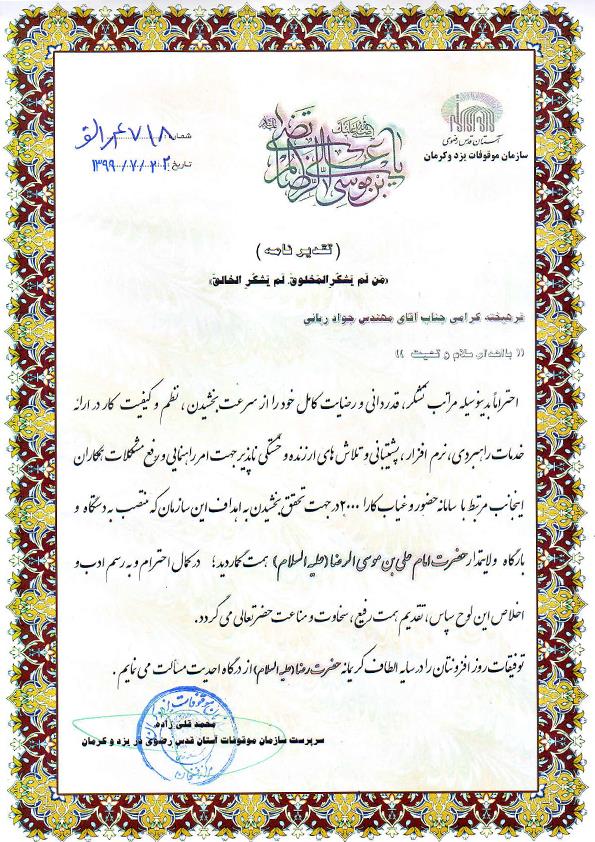 آستان قدس رضوی
سازمان موقوفات یزد و کرمان
یا علی بن موسی الرضا المرتضی
شماره:
تاریخ: ۱۳۹۹/۷/۲۲
(تقدیر نامه)
«مَن لَم یَشکُرِ المَخلوقَ، لَم یَشکُرِ الخالِقَ»
فرهیخته گرامی جناب آقای مهندس جواد ربانی
(( با اهدای سلام و تحیت ))
احتراماً بدینوسیله مراتب تشکر، قدردانی و رضایت کامل خود را از سرعت بخشیدن، نظم و کیفیت کار در ارائه
خدمات راهبردی، نرم افزار، پشتیبانی و تلاش های ارزنده و خستگی ناپذیر جهت امر راهنمایی و رفع مشکلات همکاران
اینجانب مرتبط با سامانه حضور و غیاب کارا ۲۰۰۰ در جهت تحقق بخشیدن به اهداف این سازمان که منتصب به دستگاه و
بارگاه ولایتمدار حضرت امام علی بن موسی الرضا (علیه السلام) همت گماردید؛ در کمال احترام و به رسم ادب و
اخلاص این لوح سپاس، تقدیم همت رفیع، سخاوت و مناعت حضرتعالی می گردد.
توفیقات روز افزونتان را در سایه الطاف کریمانه حضرت رضا (علیه السلام) از درگاه احدیت مسألت می نمایم.
محمد قلی زاده
سرپرست سازمان موقوفات آستان قدس رضوی در یزد و کرمان